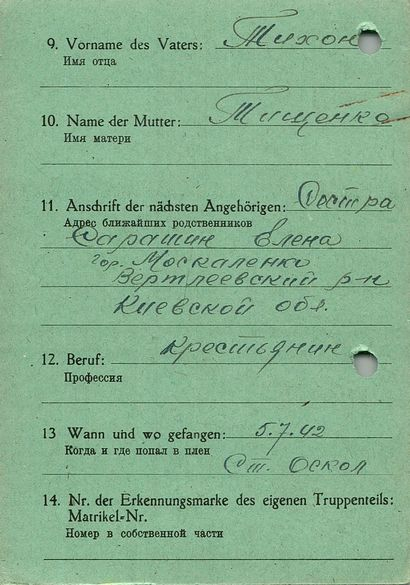 9. Vorname des Vaters: Тихон
Имя отца
10. Name der Mutter: Тищенко
Имя матери
11. Anschrift der nächsten Angehörigen: Сестра
Адрес ближайших родственников
Сарашин Елена
гор. Москаленки
Вертлеевский р-н
Киевской обл.
12. Beruf: крестьянин
Профессия
13 Wann und wo gefangen: 5.7.42
Когда и где попал в плен
Ст. Оскол
14. Nr. der Erkennungsmarke des eigenen Truppenteils:
Matrikel-Nr.
Номер в собственной части